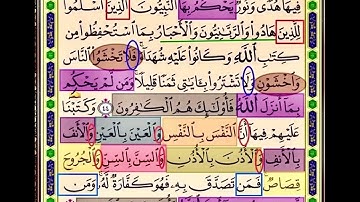 فِيهَا هُدًى وَنُورٌ يَحْكُمُ بِهَا ٱلنَّبِيُّونَ ٱلَّذِينَ أَسْلَمُوا۟
لِلَّذِينَ هَادُوا۟ وَٱلرَّبَّـٰنِيُّونَ وَٱلْأَحْبَارُ بِمَا ٱسْتُحْفِظُوا۟ مِن
كِتَـٰبِ ٱللَّهِ وَكَانُوا۟ عَلَيْهِ شُهَدَآءَ ۚ فَلَا تَخْشَوُا۟ ٱلنَّاسَ
وَٱخْشَوْنِ وَلَا تَشْتَرُوا۟ بِـَٔايَـٰتِى ثَمَنًا قَلِيلًا ۚ وَمَن لَّمْ يَحْكُم
بِمَآ أَنزَلَ ٱللَّهُ فَأُو۟لَـٰٓئِكَ هُمُ ٱلْكَـٰفِرُونَ ٤٤ وَكَتَبْنَا
عَلَيْهِمْ فِيهَآ أَنَّ ٱلنَّفْسَ بِٱلنَّفْسِ وَٱلْعَيْنَ بِٱلْعَيْنِ وَٱلْأَنفَ
بِٱلْأَنفِ وَٱلْأُذُنَ بِٱلْأُذُنِ وَٱلسِّنَّ بِٱلسِّنِّ وَٱلْجُرُوحَ
قِصَاصٌ ۚ فَمَن تَصَدَّقَ بِهِۦ فَهُوَ كَفَّارَةٌ لَّهُۥ ۚ وَمَن